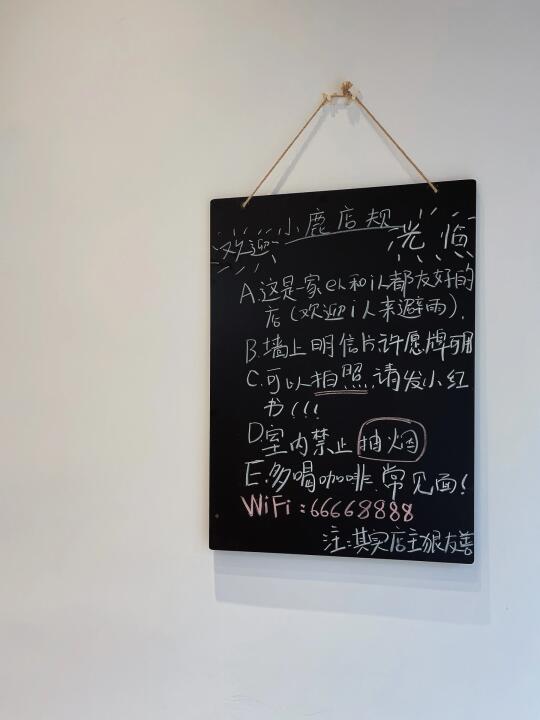 小鹿店规
欢迎 光临
A.这是一家e人和i人都友好的
店(欢迎i人来避雨).
B.墙上明信片许愿牌可用
C.可以拍照,请发小红
书!!!
D.室内禁止抽烟
E.多喝咖啡.常见面!
WiFi:66668888
注:其实店主很友善